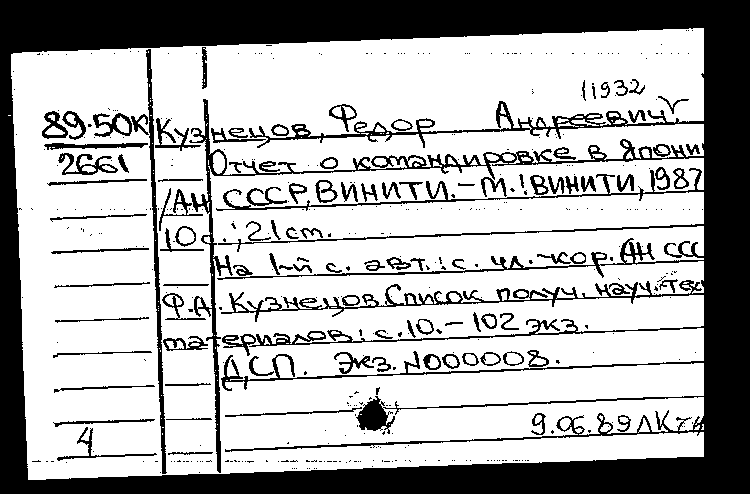 (1932
89.50К Кузнецов, Федор Андреевич.
2661 Отчет о командировке в Япони
/АН СССР, ВИНИТИ. – М.: ВИНИТИ, 1987
10с.; 21см.
На 1-й с. авт.: с. чл.-кор. АН ССС
Ф.А. Кузнецов. Список получ. науч.-тех
материалов: с. 10. – 102 экз.
ДСП. Экз. N000008.
9.06.89 ЛК
4